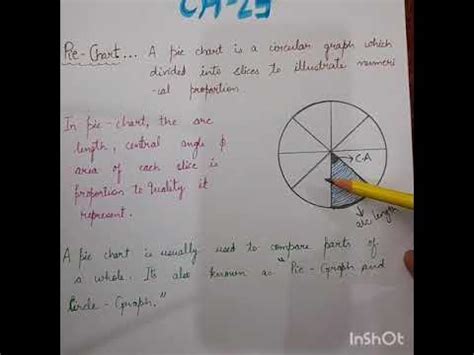 CH-25
Pie-Chart... A pie chart is a circular graph which
divided into slices to illustrate numeri
-cal proportion.
In pie-chart, the arc
length, central angle &
area of each slice is
proportion to quality it
represent.
C.A
arc length
A pie chart is usually used to compare parts of
a whole. It's also known as "Pie-Graph and
Circle-Graph."
InShOt